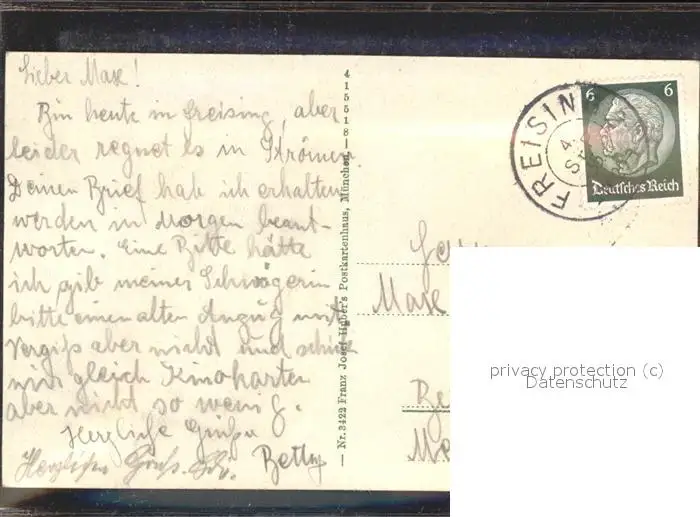 Lieber Max!
Bin heute in Freising, aber
leider regnet es in Strömen.
Deinen Brief hab ich erhalten
werden in Morgen beant-
worten. Eine Bitte hätte
ich gib meiner Schwägerin
bitte einen alten Anzug mit
Vergiß aber nicht und schicke
mir gleich Kinokarten
aber nicht so wenig.
Herzliche Grüße
Betty
Herzlichen Gruß
41551 8 — Nr. 3422 Franz Josef Huber's Postkartenhaus, München —
FREISING
4.
SE
6 6
Deutsches Reich
Max
privacy protection (c)
Datenschutz